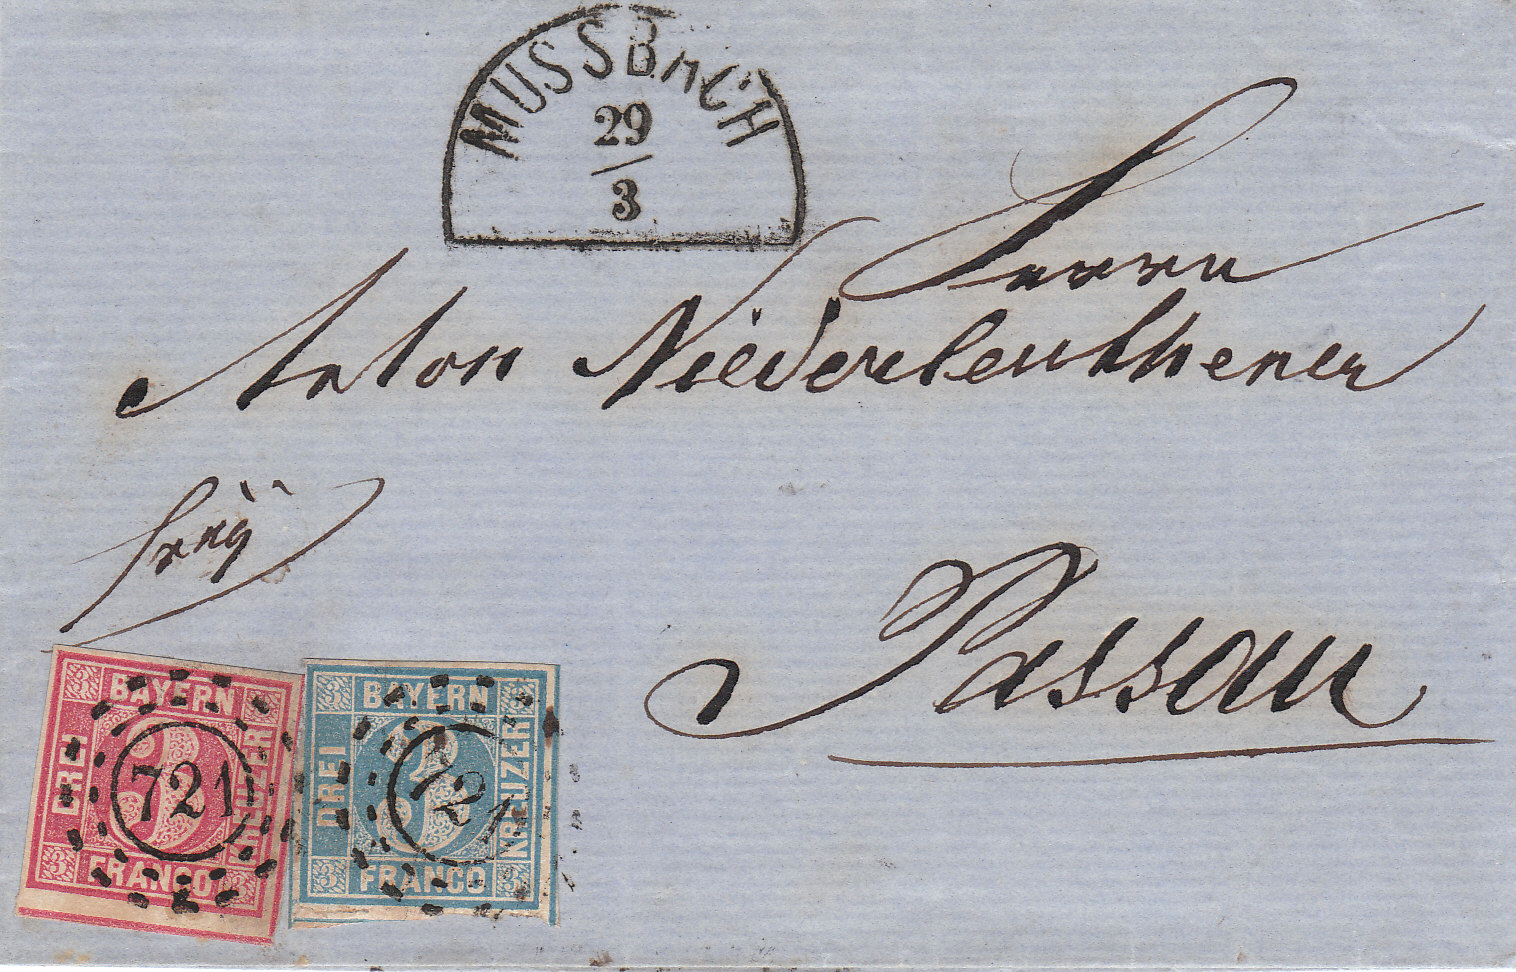 MUSSBACH
29
3
Herrn
Anton Niederleuthener
frey
Passau
BAYERN
DREI
KREUZER
FRANCO
3
3
3
721
BAYERN
DREI
KREUZER
FRANCO
3
3
3
721